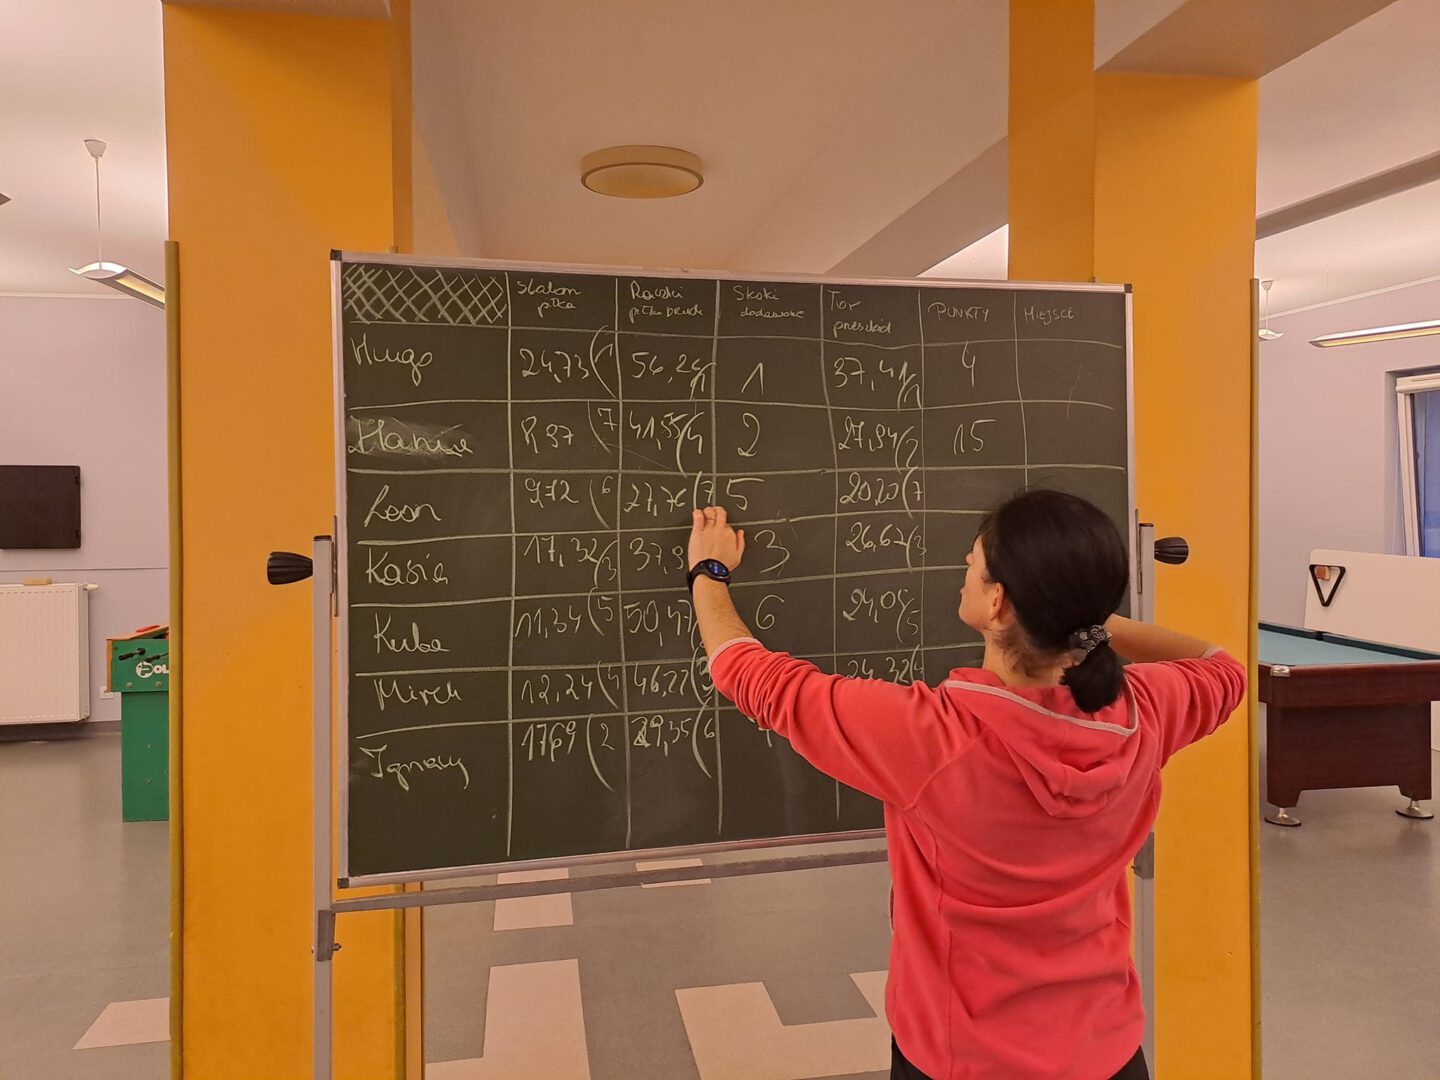 Slalom piłka
Skoki dodawane
Tor przeszkód
PUNKTY
MIEJSCE
Hugo 24,73 (1 56,24 (1 1 37,41 (1 4
8,97 (7 41,55 (4 2 27,94 (2 15
Leon 9,72 (6 27,76 (7 5 20,20 (7
Kasia 17,32 (3 37,9 3 26,67 (3
Kuba 11,34 (5 50,47 6 24,04 (5
Mirek 12,24 (4 46,27 (3 24,32 (4
Ignacy 17,69 (2 29,35 (6